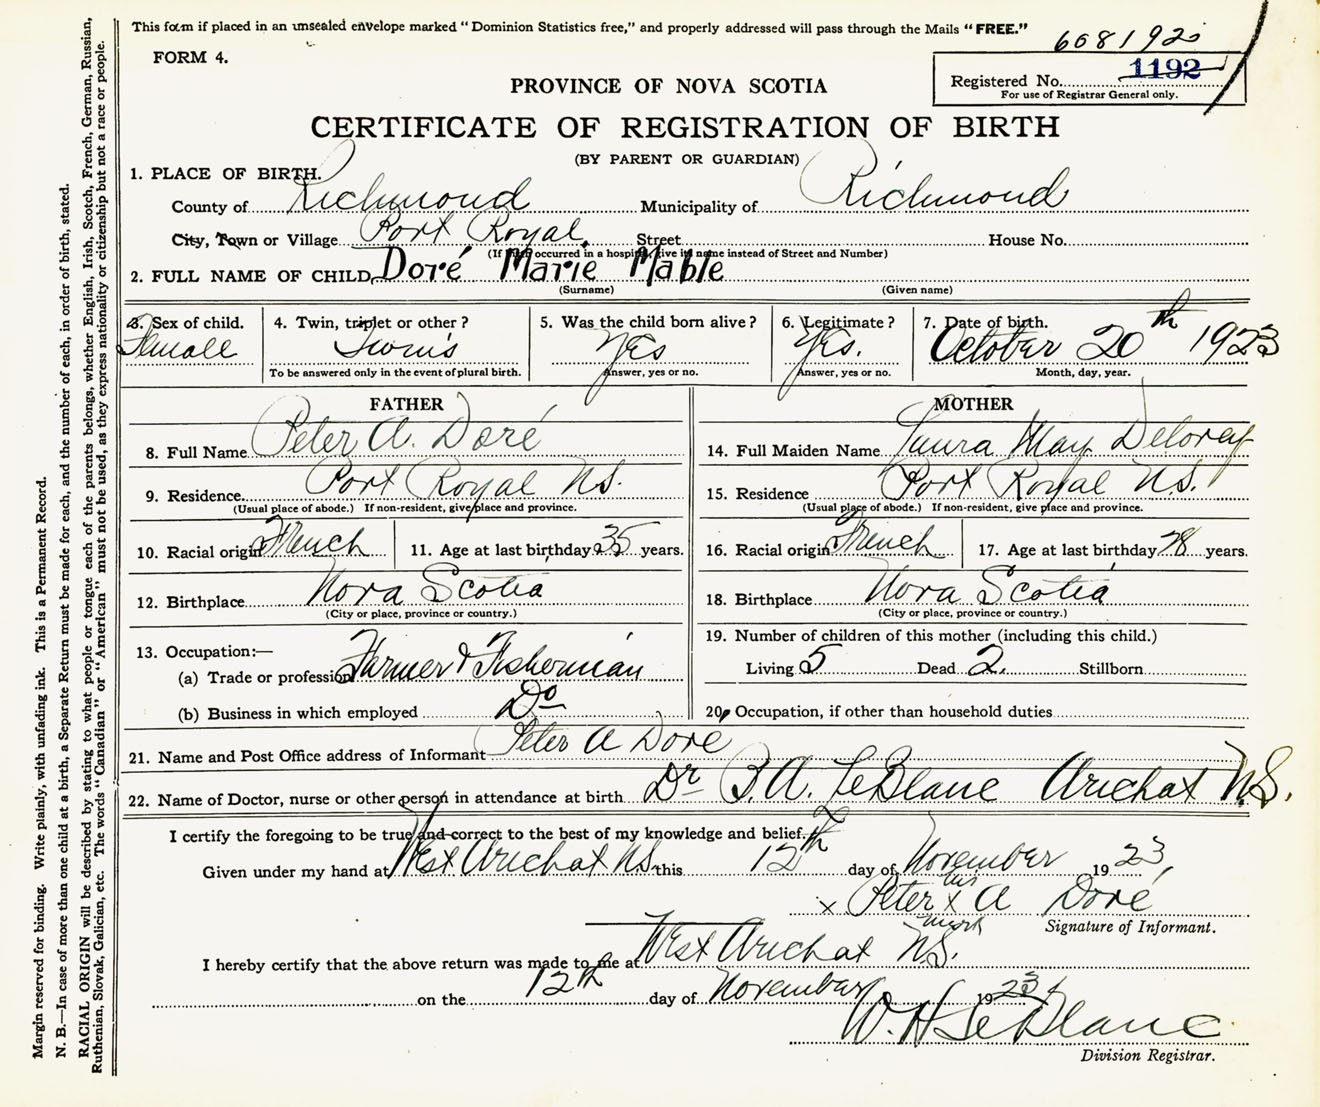 This form if placed in an unsealed envelope marked “Dominion Statistics free,” and properly addressed will pass through the Mails “FREE.”
FORM 4.
6681920
Registered No. 1192
For use of Registrar General only.
PROVINCE OF NOVA SCOTIA
CERTIFICATE OF REGISTRATION OF BIRTH
(BY PARENT OR GUARDIAN)
1. PLACE OF BIRTH.
County of Richmond Municipality of Richmond
City, Town or Village Port Royal. Street House No.
(If birth occurred in a hospital, give its name instead of Street and Number)
2. FULL NAME OF CHILD Doré Marie Mable
(Surname) (Given name)
3. Sex of child. Female
4. Twin, triplet or other? Twins
To be answered only in the event of plural birth.
5. Was the child born alive? Yes
Answer, yes or no.
6. Legitimate? Yes.
Answer, yes or no.
7. Date of birth. October 20th 1923
Month, day, year.
FATHER
8. Full Name Peter A. Doré
9. Residence Port Royal N.S.
(Usual place of abode.) If non-resident, give place and province.
10. Racial origin French 11. Age at last birthday 35 years.
12. Birthplace Nova Scotia
(City or place, province or country.)
13. Occupation:—
(a) Trade or profession Farmer & Fisherman
(b) Business in which employed Do
MOTHER
14. Full Maiden Name Laura May Delorey
15. Residence Port Royal N.S.
(Usual place of abode.) If non-resident, give place and province.
16. Racial origin French 17. Age at last birthday 28 years.
18. Birthplace Nova Scotia
(City or place, province or country.)
19. Number of children of this mother (including this child.)
Living 5 Dead 2. Stillborn
20. Occupation, if other than household duties
21. Name and Post Office address of Informant Peter A Doré
22. Name of Doctor, nurse or other person in attendance at birth Dr B.A. LeBlanc Arichat N.S.
I certify the foregoing to be true and correct to the best of my knowledge and belief.
Given under my hand at West Arichat N.S. this 12th day of November 1923,
his
x Peter x A Doré
mark
Signature of Informant.
I hereby certify that the above return was made to me at West Arichat N.S.
on the 12th day of November 1923,
W. H LeBlanc
Division Registrar.
Margin reserved for binding. Write plainly, with unfading ink. This is a Permanent Record.
N. B.—In case of more than one child at a birth, a Separate Return must be made for each, and the number of each, in order of birth, stated.
RACIAL ORIGIN will be described by stating to what people or tongue each of the parents belongs, whether English, Irish, Scotch, French, German, Russian,
Ruthenian, Slovak, Galician, etc. The words “Canadian” or “American” must not be used, as they express nationality or citizenship but not a race or people.